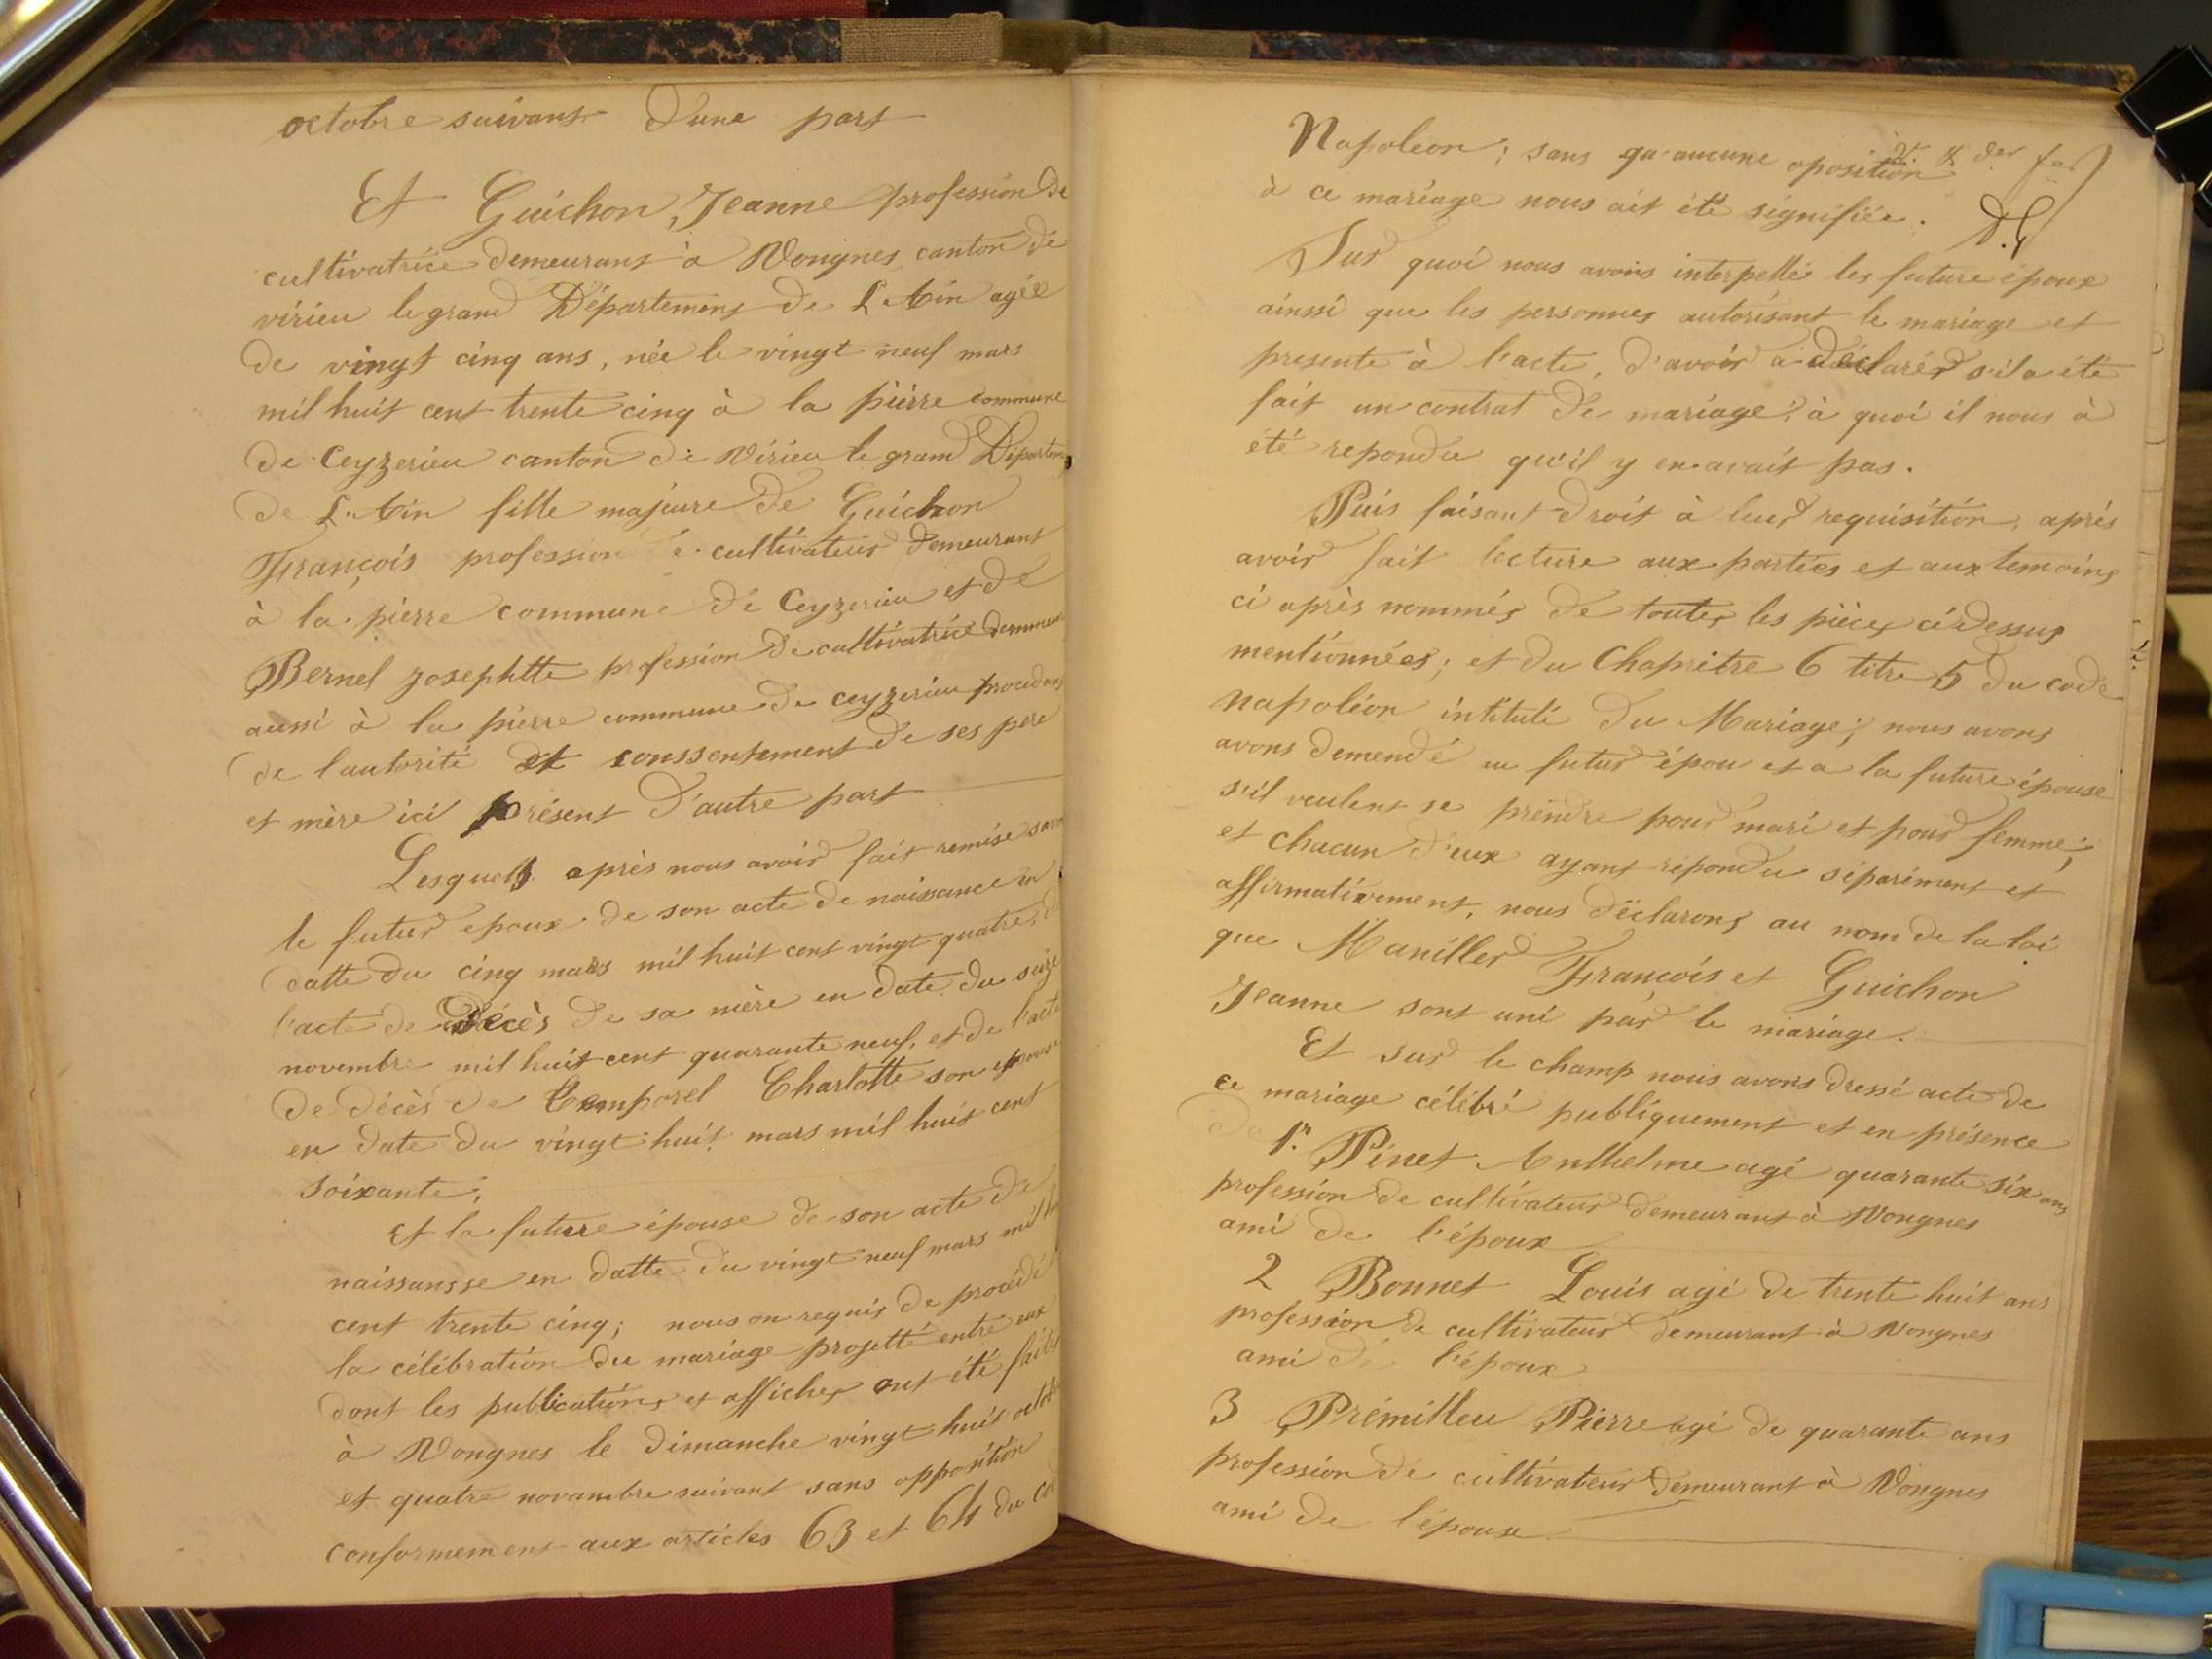 octobre suivant d'une part
Et Guichon, Jeanne profession de
cultivatrice demeurant à Vongnes canton de
virieu le grand Département de L'Ain agée
de vingt cinq ans, née le vingt neuf mars
mil huit cent trente cinq à la pierre commune
de Ceyzerieu canton de Virieu le grand Départem
de L'Ain fille majeure de Guichon
François profession de cultivateur demeurant
à la pierre commune de Ceyzerieu et de
Bernel Josephtte profession de cultivatrice demmeur
aussi à la pierre commune de ceyzerieu procedant
de l'autorité et conssentement de ses père
et mère ici présent d'autre part
Lesquels après nous avoir fait remise savoir
le futur epoux de son acte de naissance en
datte du cinq mars mil huit cent vingt quatre, de
l'acte de décès de sa mère en date du seize
novembre mil huit cent quarante neuf, et de l'acte
de décès de Temporel Charlotte son epouse
en date du vingt huit mars mil huit cent
soixante;
Et la future épouse de son acte de
naissansse en datte du vingt neuf mars mil hu
cent trente cinq; nous on requis de procédé
la célébration du mariage projetté entre eux
dont les publications et affiches ont été faites
à Vongnes le dimanche vingt huit octob
et quatre novambre suivant sans opposition
conformement aux articles 63 et 64 du cod
Napoleon; sans qu'aucune oposition
à ce mariage nous ait été signifiée.
Sur quoi nous avons interpellé les future époux
ainssi que les personnes autorisant le mariage et
presente à l'acte, d'avoir a déclarér s'il a été
fait un contrat de mariage; à quoi il nous à
été repondu qu'il y en avait pas.
Puis faisant droit à leur requisition, aprés
avoir fait lecture aux parties et aux temoins
ci après nommés de toutes les pièces ci dessus
mentionnées; et du Chapritre 6 titre 5 du code
Napoléon intitulé du Mariage; nous avons
avons demendé au futur épou et a la future épouse
s'il veulent se prendre pour mari et pour femme;
et chacun d'eux ayant répondu séparément et
affirmativement, nous déclarons au nom de la loi
que Maniller François et Guichon
Jeanne sont uni par le mariage.
Et sur le champ nous avons dressé acte de
ce mariage célébré publiquement et en présence
de 1.er Pinet Anthelme agé quarante six ans
profession de cultivateur demeurant à Vongnes
ami de l'époux
2 Bonnet Louis agé de trente huit ans
profession de cultivateur demeurant à Vongnes
ami de l'époux
3 Prémilleu Pierre agé de quarante ans
profession de cultivateur demeurant à Vongnes
ami de l'époux